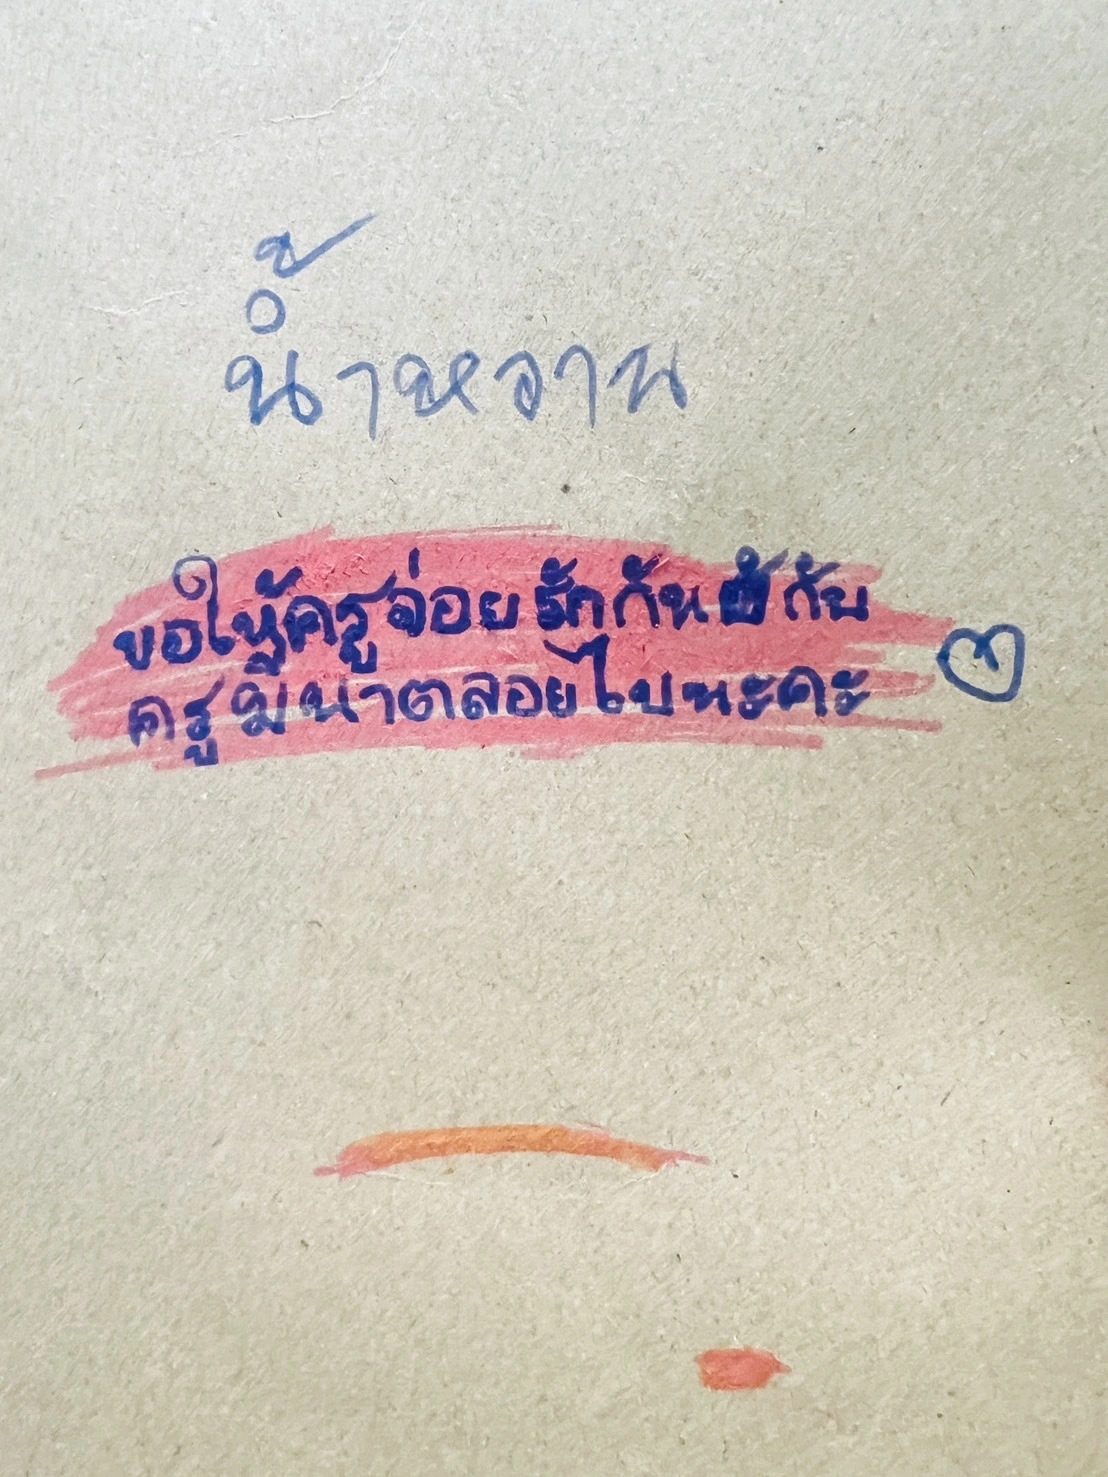 น้ำหวาน
ขอให้ครูจ่อยรักกันกับ
ครูมีนาตลอยไปนะคะ